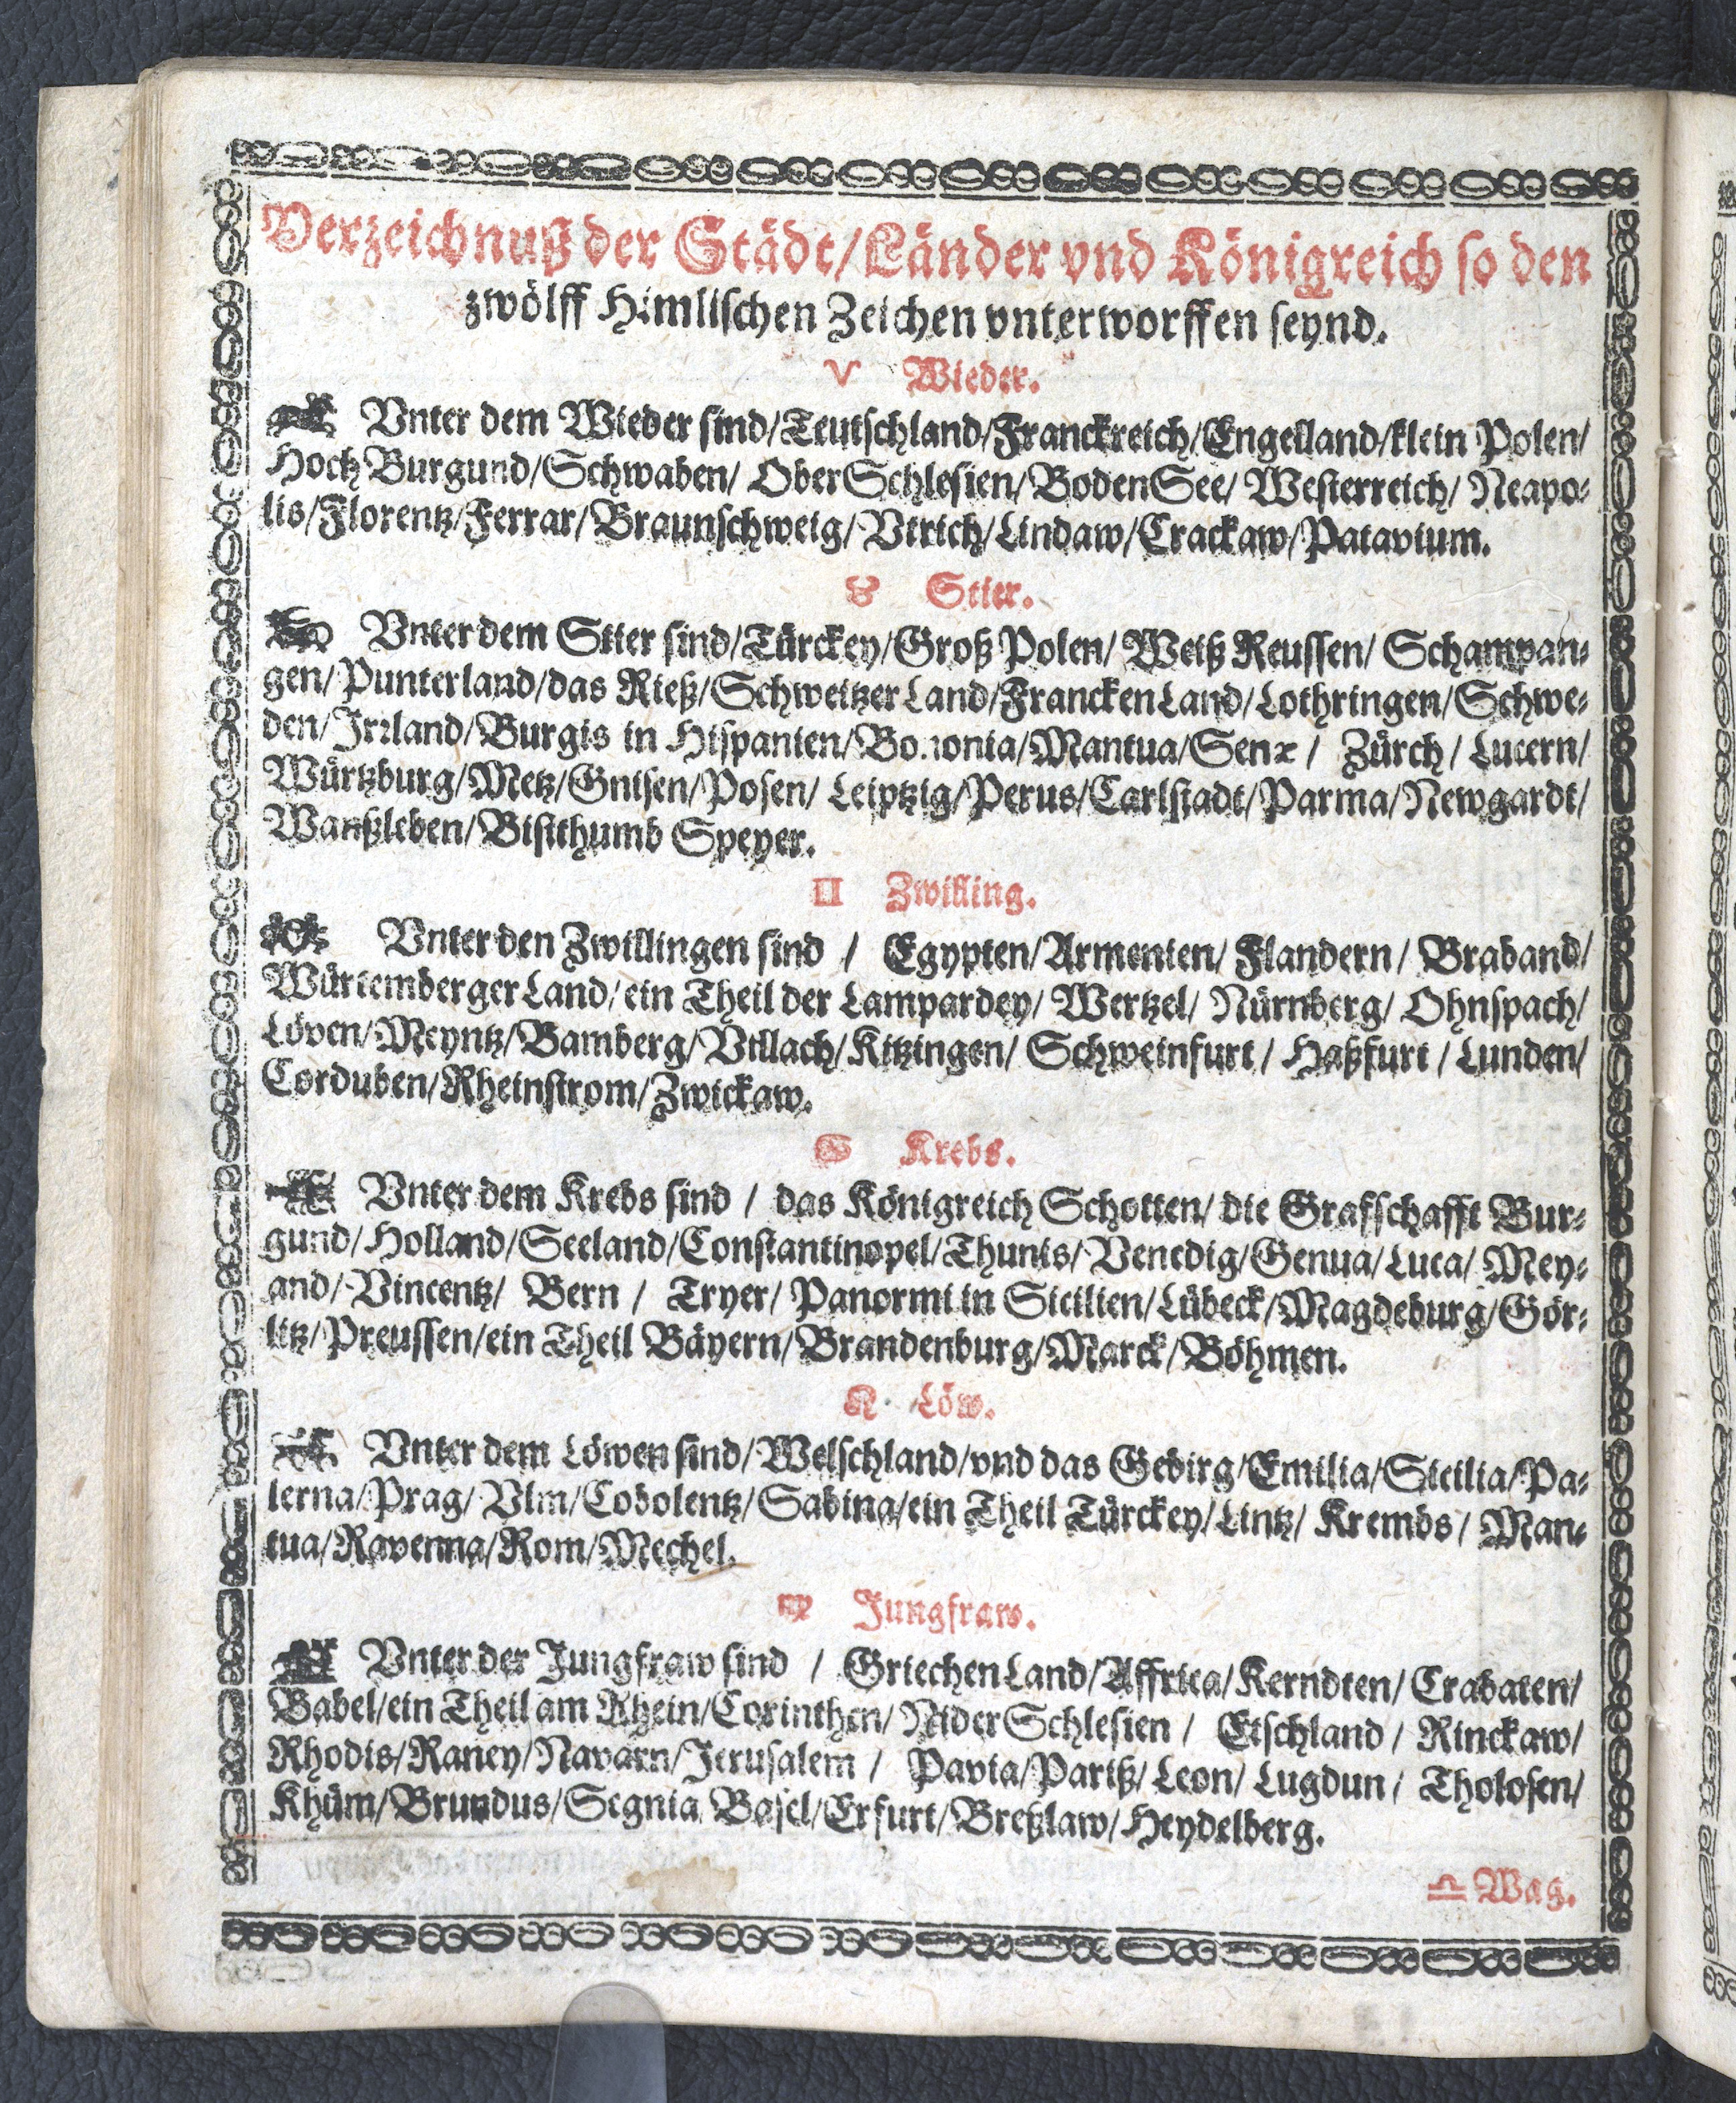 Verzeichnuß der Städt/Länder vnd Königreich so den
zwölff Himlischen Zeichen vnterworffen seynd.
♈ Wieder.
Vnter dem Wieder sind/Teutschland/Franckreich/Engelland/klein Polen/
Hoch Burgund/Schwaben/ OberSchlesien/BodenSee/ Westerreich/ Neapo-
lis/Florentz/Ferrar/Braunschweig/Vtrich/Lindaw/Crackaw/Patavium.
♉ Stier.
Vnter dem Stier sind/Türckey/Groß Polen/ Weiß Reussen/ Schampan-
gen/Punterland/das Rieß/Schweitzer Land/FranckenLand/Lothringen/Schwe-
den/Irrland/Burgis in Hispanien/Bononia/Mantua/Senæ / Zürch/ Lucern/
Würtzburg/Metz/Gnisen/Posen/ Leiptzig/Perus/Carlstadt/Parma/Newgardt/
Wanßleben/Bisithumb Speyer.
♊ Zwilling.
Vnter den Zwillingen sind / Egypten/Armenien/ Flandern/ Braband/
Würtemberger Land/ein Theil der Lampardey/ Wertzel/ Nürnberg/ Ohnspach/
Löven/Meyntz/Bamberg/Villach/Kitzingen/ Schweinfurt / Haßfurt / Lunden/
Corduben/Rheinstrom/Zwickaw.
♋ Krebs.
Vnter dem Krebs sind / das Königreich Schotten/ die Grafschafft Bur-
gund/Holland/Seeland/Constantinopel/Thunis/Venedig/Genua/Luca/ Mey-
and/Vincentz/ Bern / Tryer/ Panormi in Sicilien/Lübeck/Magdeburg/Gör-
litz/Preussen/ein Theil Bäyern/Brandenburg/Marck/Böhmen.
♌ Löw.
Vnter dem Löwen sind/Welschland/vnd das Gebirg/Emilia/Sicilia/Pa-
lerna/Prag/ Vlm/Cobolentz/Sabina/ein Theil Türckey/Lintz/ Krembs/ Man-
tua/Ravenna/Rom/Mechel.
♍ Jungfraw.
Vnter der Jungfraw sind / Griechen Land/Affrica/Kerndten/ Crabaten/
Babel/ein Theil am Rhein/Corinthen/ NiderSchlesien / Etschland / Rinckaw/
Rhodis/Raney/Navarn/Jerusalem / Pavia/Pariß/ Leon/ Lugdun/ Tholosen/
Khüm/Brundus/Segnia Basel/Erfurt/Breßlaw/Heydelberg.
♎ Wag.